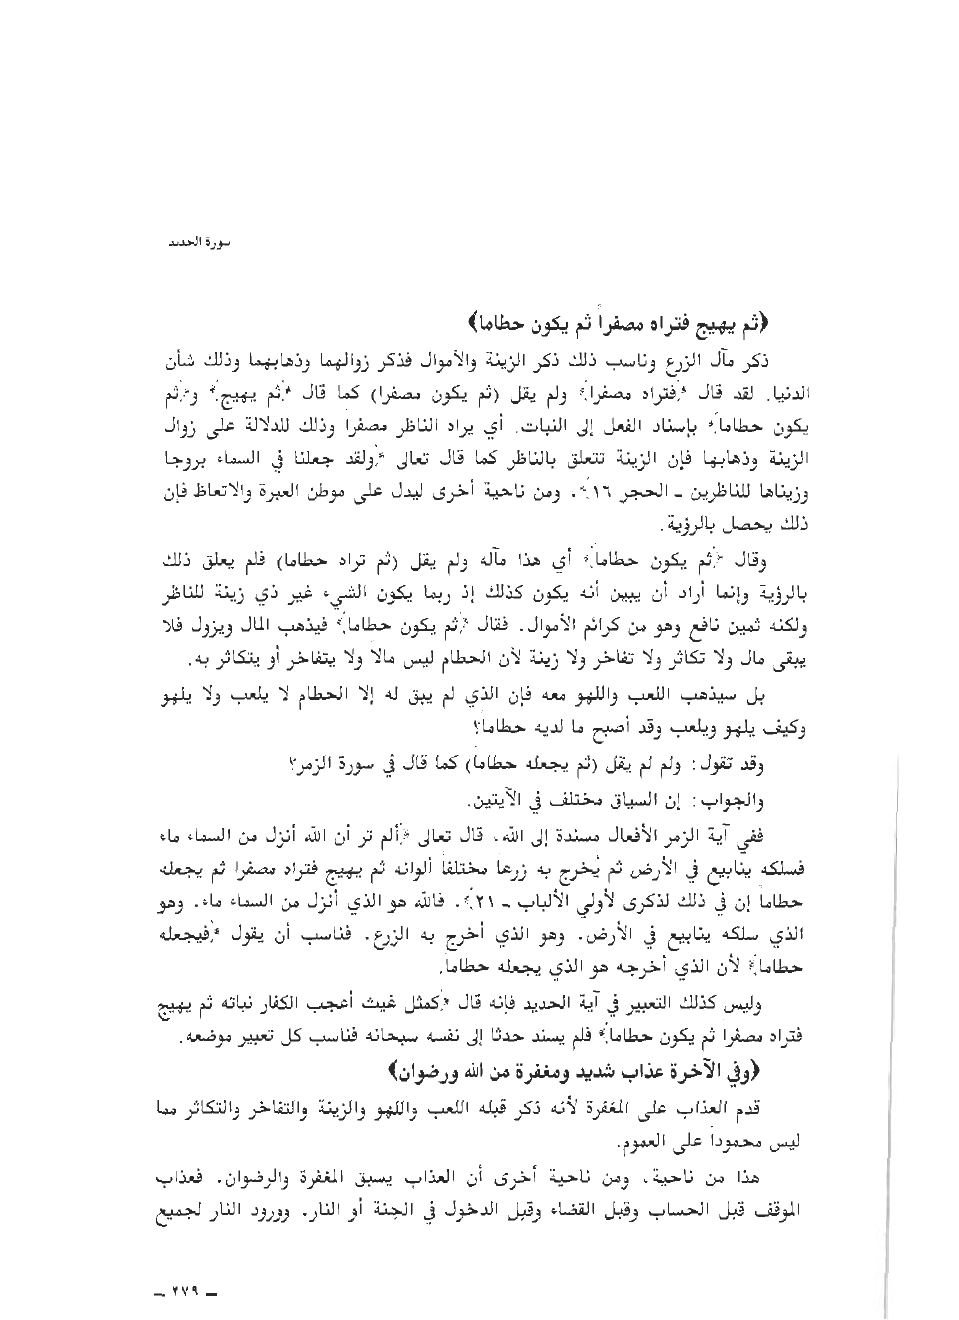 سورة الحديد
﴿ثم يهيج فتراه مصفراً ثم يكون حطاما﴾
ذكر مآل الزرع وناسب ذلك ذكر الزينة والأموال فذكر زوالهما وذهابهما وذلك شأن
الدنيا. لقد قال ﴿فتراه مصفرا﴾ ولم يقل (ثم يكون مصفرا) كما قال ﴿ثم يهيج﴾ و﴿ثم
يكون حطاماً﴾ بإسناد الفعل إلى النبات. أي يراه الناظر مصفراً وذلك للدلالة على زوال
الزينة وذهابها فإن الزينة تتعلق بالناظر كما قال تعالى ﴿ولقد جعلنا في السماء بروجا
وزيناها للناظرين ـ الحجر ١٦﴾. ومن ناحية أخرى ليدل على موطن العبرة والاتعاظ فإن
ذلك يحصل بالرؤية.
وقال ﴿ثم يكون حطاماً﴾ أي هذا مآله ولم يقل (ثم تراه حطاما) فلم يعلق ذلك
بالرؤية وإنما أراد أن يبين أنه يكون كذلك إذ ربما يكون الشيء غير ذي زينة للناظر
ولكنه ثمين نافع وهو من كرائم الأموال. فقال ﴿ثم يكون حطاما﴾ فيذهب المال ويزول فلا
يبقى مال ولا تكاثر ولا تفاخر ولا زينة لأن الحطام ليس مالاً ولا يتفاخر أو يتكاثر به.
بل سيذهب اللعب واللهو معه فإن الذي لم يبق له إلا الحطام لا يلعب ولا يلهو
وكيف يلهو ويلعب وقد أصبح ما لديه حطاماً؟
وقد تقول: ولم لم يقل (ثم يجعله حطاماً) كما قال في سورة الزمر؟
والجواب: إن السياق مختلف في الآيتين.
ففي آية الزمر الأفعال مسندة إلى الله، قال تعالى ﴿ألم تر أن الله أنزل من السماء ماء
فسلكه ينابيع في الأرض ثم يُخرج به زرعا مختلفاً ألوانه ثم يهيج فتراه مصفرا ثم يجعله
حطاماً إن في ذلك لذكرى لأولي الألباب ـ ٢١﴾. فالله هو الذي أنزل من السماء ماء. وهو
الذي سلكه ينابيع في الأرض. وهو الذي أخرج به الزرع. فناسب أن يقول ﴿فيجعله
حطاما﴾ لأن الذي أخرجه هو الذي يجعله حطاماً.
وليس كذلك التعبير في آية الحديد فإنه قال ﴿كمثل غيث أعجب الكفار نباته ثم يهيج
فتراه مصفرا ثم يكون حطاماً﴾ فلم يسند حدثا إلى نفسه سبحانه فناسب كل تعبير موضعه.
﴿وفي الآخرة عذاب شديد ومغفرة من الله ورضوان﴾
قدم العذاب على المغفرة لأنه ذكر قبله اللعب واللهو والزينة والتفاخر والتكاثر مما
ليس محموداً على العموم.
هذا من ناحية، ومن ناحية أخرى أن العذاب يسبق المغفرة والرضوان. فعذاب
الموقف قبل الحساب وقبل القضاء وقبل الدخول في الجنة أو النار. وورود النار لجميع
ـ ٢٧٩ ـ